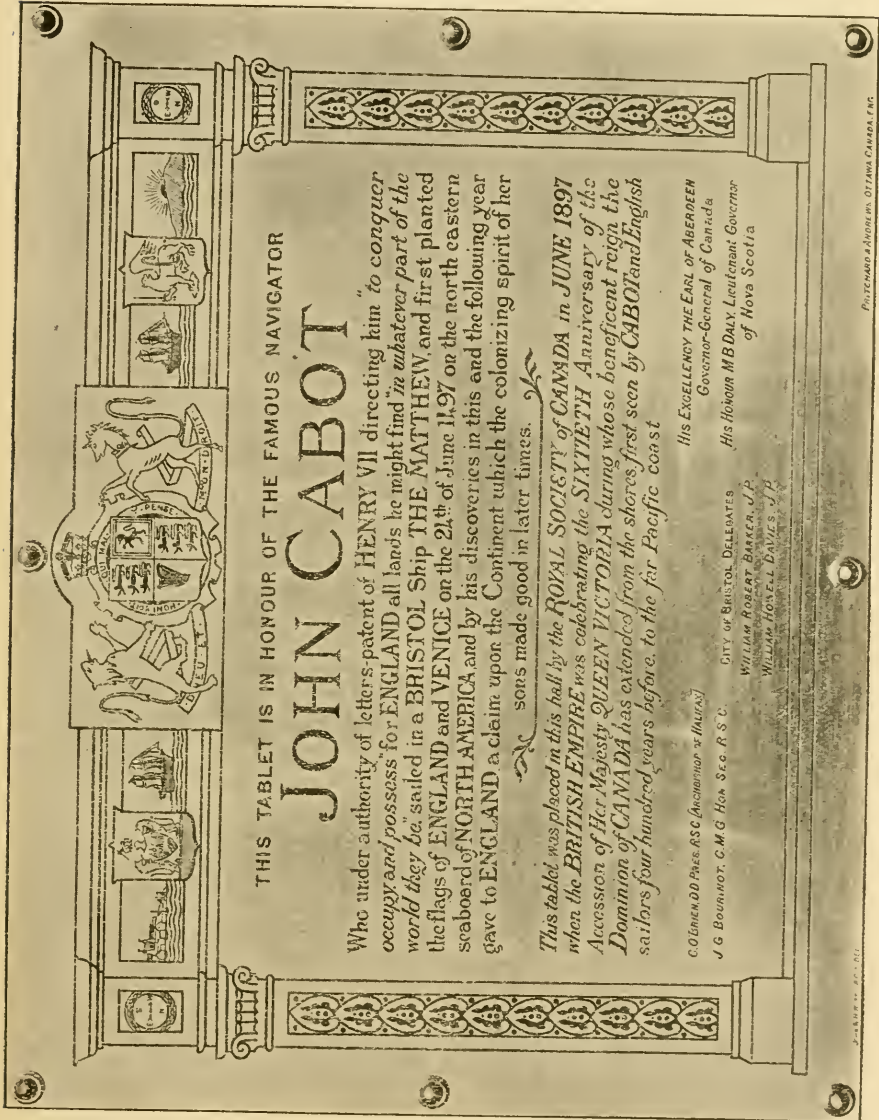 HONI SOIT QUI MAL Y PENSE
DIEU ET MON DROIT
THIS TABLET IS IN HONOUR OF THE FAMOUS NAVIGATOR
JOHN CABOT
Who under authority of letters-patent of HENRY VII directing him "to conquer
occupy, and possess" for ENGLAND all lands he might find "in whatever part of the
world they be," sailed in a BRISTOL Ship THE MATTHEW, and first planted
the flags of ENGLAND and VENICE on the 24th of June 1497 on the north eastern
seaboard of NORTH AMERICA, and by his discoveries in this and the following year
gave to ENGLAND, a claim upon the Continent which the colonizing spirit of her
sons made good in later times.
This tablet was placed in this hall by the ROYAL SOCIETY of CANADA in JUNE 1897
when the BRITISH EMPIRE was celebrating the SIXTIETH Anniversary of the
Accession of Her Majesty QUEEN VICTORIA during whose beneficent reign the
Dominion of CANADA has extended from the shores, first seen by CABOT and English
sailors four hundred years before, to the far Pacific coast
C. O'BRIEN, DD PRES. R S C (ARCHBISHOP OF HALIFAX)
J G BOURINOT, C.M.G HON SEC. R S C.
CITY OF BRISTOL DELEGATES
WILLIAM ROBERT BARKER, J.P.
WILLIAM HOWELL DAVIES, J.P.
HIS EXCELLENCY THE EARL OF ABERDEEN
Governor-General of Canada
HIS HONOUR M B DALY, Lieutenant Governor
of Nova Scotia
PRITCHARD & ANDREWS OTTAWA CANADA, ENG.